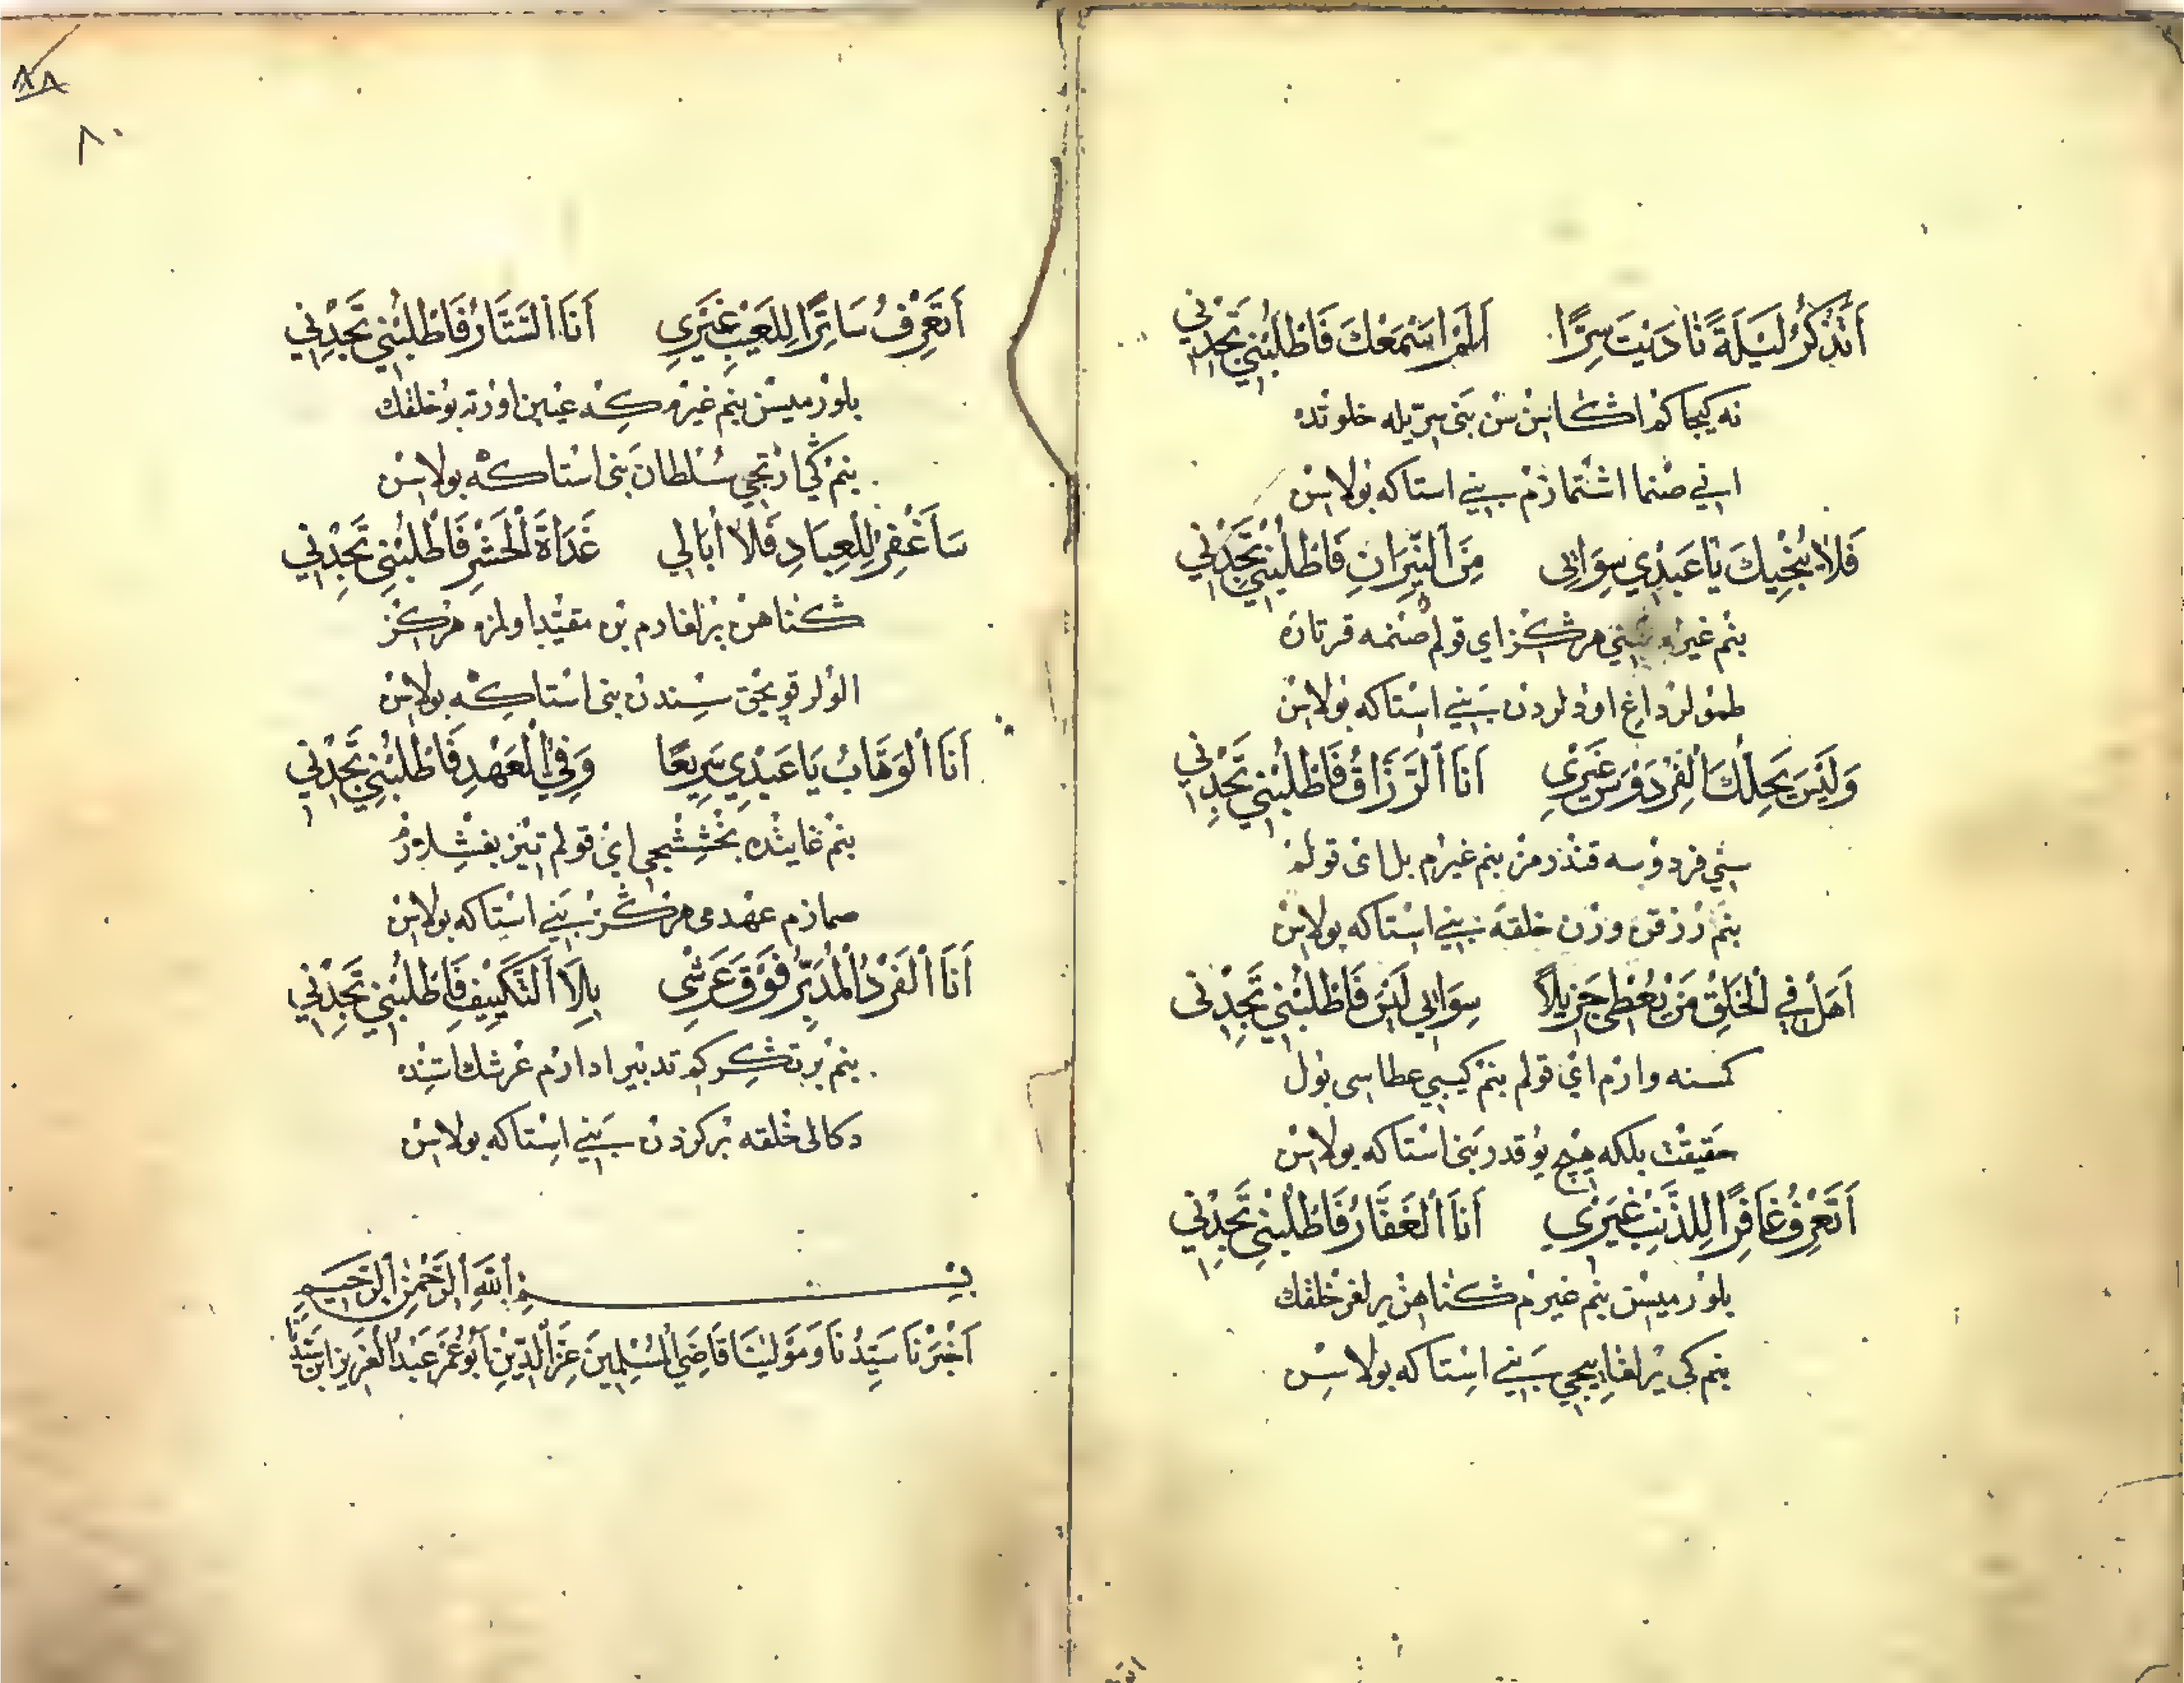 أَتَذْكُرُ لَيْلَةً نَادَيْتَ سِرًّا أَلَمْ اَسْمَعْكَ فَاطْلُبْنِي تَجِدْنِي
نه كيجا كم اڭا سن سن بنى سرّيله خلوتده
اسنى صنما اشتمازم بنى استاكه بولاسن
فَلَا يُنْجِيكَ يَا عَبْدِي سِوَائِى مِنَ ٱلنِّيرَانِ فَاطْلُبْنِي تَجِدْنِي
بنم غيرم سنى هرڭز اى قولم صنمه قرتاره
طمولرداغ اودلردن بنى استاكه بولاسن
وَلَيْسَ يَحِلُّكَ الْفِرْدَوْسَ غَيْرِى أَنَا ٱلرَّزَّاقُ فَاطْلُبْنِي تَجِدْنِي
سنى فردوسه قندرمز بنم غيرم بل اى قولم
بنم رزقن ورن خلقه بنى استاكه بولاسن
أَهَلْ فِي ٱلْخَلْقِ مَنْ يُعْطِى جَزِيلًا سِوَائِي لَيْسَ فَاطْلُبْنِي تَجِدْنِى
كمسنه وارم اى قولم بنم كبى عطاسى بول
حقيقت بلكه هيچ يوقدر بنى استاكه بولاسن
أَتَعْرِفُ غَافِرًا لِلذَّنْبِ غَيْرِي أَنَا ٱلْغَفَّارُ فَاطْلُبْنِي تَجِدْنِي
بلورميسن بنم غيرم ڭناهن يرلغر خلقك
بنم كى يرلغايجى بنى استاكه بولاسن
٨٨
٨٠
أَتَعْرِفُ سَاتِرًا لِلْعَيْبِ غَيْرِي أَنَا ٱلسَّتَّارُ فَاطْلُبْنِي تَجِدْنِي
بلورميسن بنم غيرم كه عيبن اورته بو خلقك
بنم كى ارتجى سلطان بنى استاكه بولاسن
سَأَغْفِرُ لِلْعِبَادِ فَلَا أُبَالِي غَدَاةَ ٱلْحَشْرِ فَاطْلُبْنِي تَجِدْنِي
ڭناهن يرلغادم بن مقيد اولمزم هركز
اولر قوبيجق سندن بنى استاكه بولاسن
أَنَا ٱلْوَهَّابُ يَا عَبْدِي سَرِيعًا وَفِي ٱلْعَهْدِ فَاطْلُبْنِي تَجِدْنِي
بنم غايتده بخششجى اى قولم تيز بغشلارم
صمازم عهدمى هرڭز بنى استاكه بولاسن
أَنَا ٱلْفَرْدُ ٱلْمُدَبِّرُ فَوْقَ عَرْشِى بِلَا ٱلتَّكْيِيفِ فَاطْلُبْنِي تَجِدْنِي
بنم بر تڭرى كم تدبير ادارم عرشك استنده
بنى استاكه بولاسن
بِسْمِ ٱللهِ ٱلرَّحْمٰنِ ٱلرَّحِيمِ
أَخْبَرَنَا سَيِّدُنَا وَمَوْلَيْنَا قَاضِي الْمُسْلِمِينَ عِزُّ ٱلدِّينِ أَبُو عُمَرَ عَبْدُ ٱلْعَزِيزِ ابْنُ سَيِّدِنَا